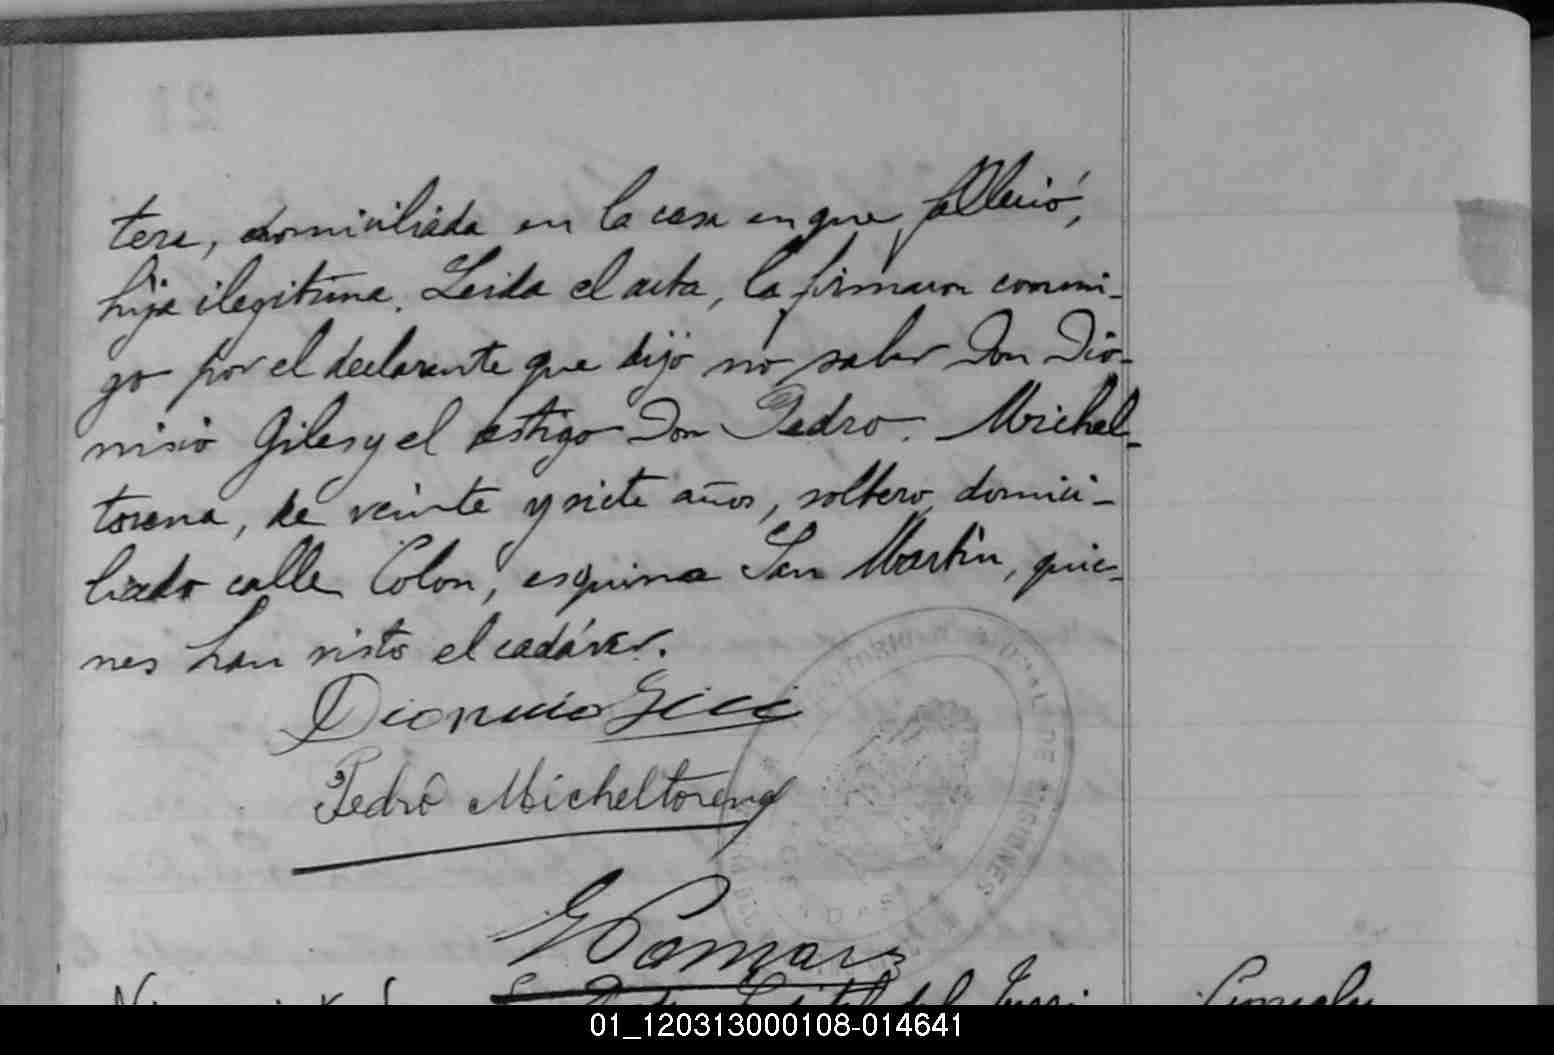 tera, domiciliada en la casa en que falleció,
hija ilegitima. Leida el acta, la firmaron conmi-
go por el declarante que dijo no saber Don Dio-
nisio Giles y el testigo Don Pedro. Michel-
torena, de veinte y siete años, soltero, domici-
liado calle Colon, esquina San Martin, quie-
nes han visto el cadáver.
Dionicio
Pedro Micheltorena
TERRITORIO NACIONAL DE MISIONES
Capital del
01_120313000108-014641